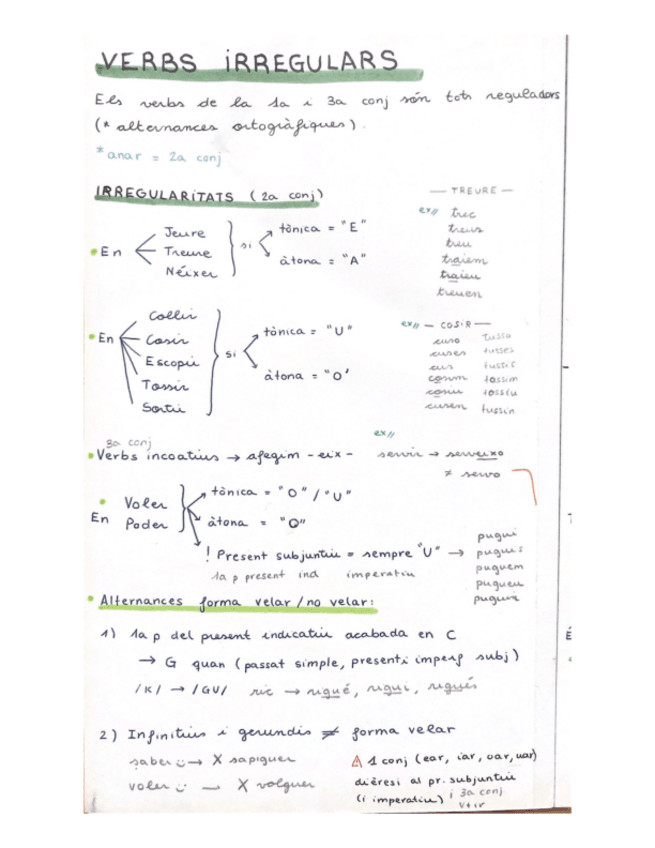 VERBS IRREGULARS
Els verbs de la 1a i 3a conj són tots reguladors
(* alternances ortogràfiques).
*anar = 2a conj
IRREGULARITATS (2a conj)
• En
Jeure
Treure
Néixer
si
tònica = "E"
àtona = "A"
— TREURE —
ex//
trec
treus
treu
traiem
traieu
treuen
• En
Collir
Cosir
Escopir
Tossir
Sortir
si
tònica = "U"
àtona = "O"
ex// — COSIR —
cuso tusso
cuses tusses
cus tusses
cosim tossim
cosiu tossiu
cusen tussin
3a conj
• Verbs incoatius → afegim - eix -
ex//
servir → serveixo
≠ servo
• En
Voler
Poder
tònica = "O" / "U"
àtona = "O"
! Present subjuntiu = sempre "U" →
1a p present ind imperatiu
pugui
puguis
puguem
pugueu
puguin
• Alternances forma velar / no velar:
1) 1a p del present indicatiu acabada en C
→ G quan (passat simple, present i imperf subj)
/K/ → /GU/ ric → rigué, rigui, rigués
2) Infinitius i gerundis ≠ forma velar
saber → X sapiguer
voler → X volguer
⚠ 1 conj (ear, iar, oar, uar)
dièresi al pr. subjuntiu
(i imperatiu) i 3a conj